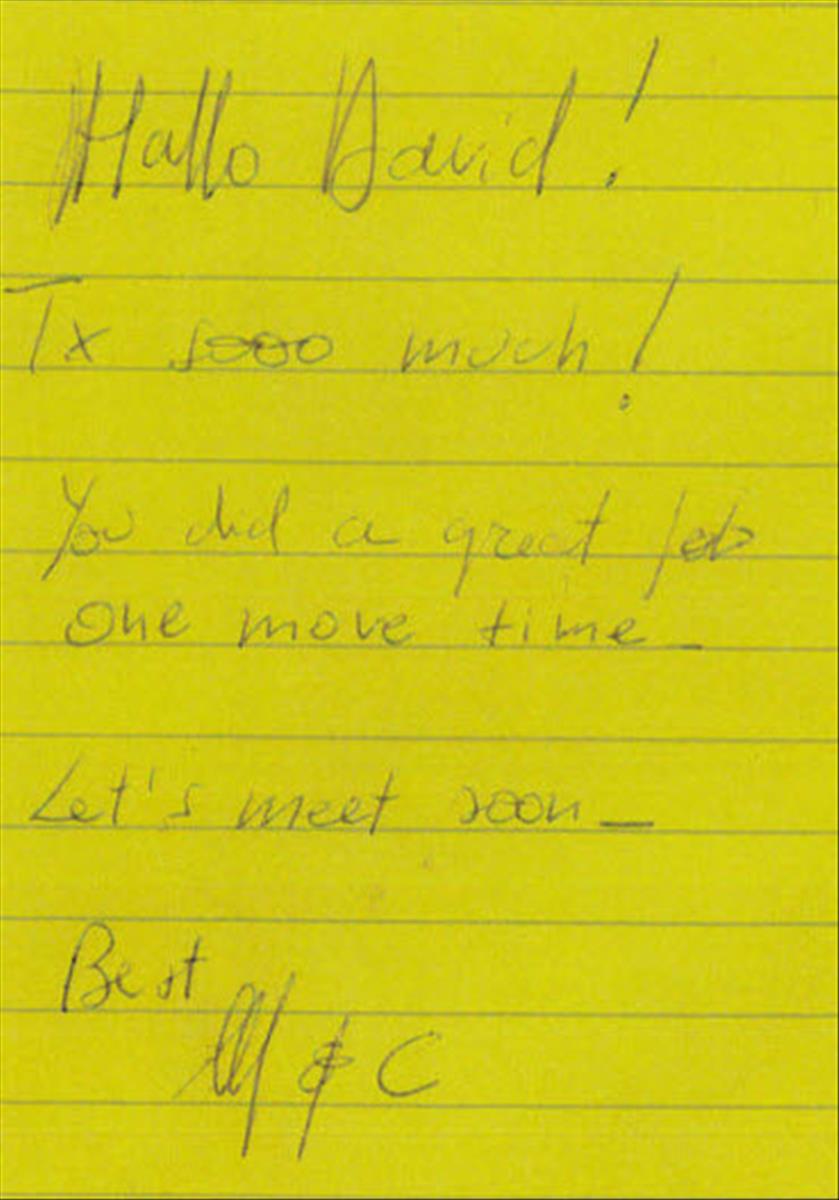 Hallo David!
Tx sooo much!
You did a great job
one move time_
Let's meet soon_
Best
M & C